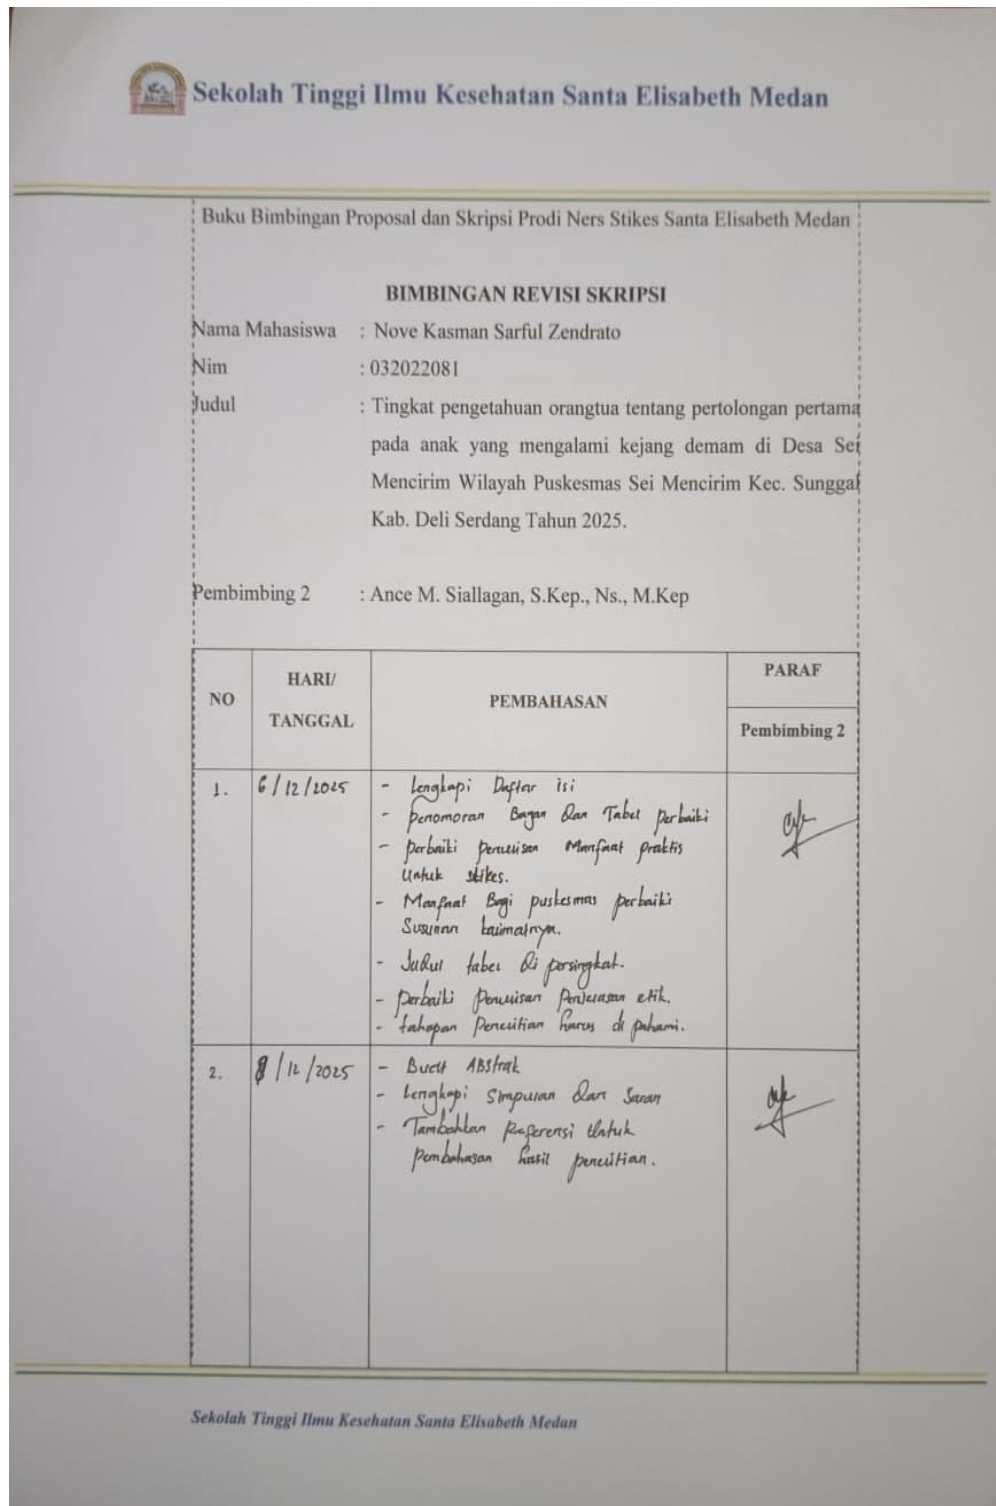 Sekolah Tinggi Ilmu Kesehatan Santa Elisabeth Medan
Buku Bimbingan Proposal dan Skripsi Prodi Ners Stikes Santa Elisabeth Medan
BIMBINGAN REVISI SKRIPSI
Nama Mahasiswa : Nove Kasman Sarful Zendrato
Nim : 032022081
Judul : Tingkat pengetahuan orangtua tentang pertolongan pertama
pada anak yang mengalami kejang demam di Desa Sei
Mencirim Wilayah Puskesmas Sei Mencirim Kec. Sunggal
Kab. Deli Serdang Tahun 2025.
Pembimbing 2 : Ance M. Siallagan, S.Kep., Ns., M.Kep
NO HARI/ TANGGAL PEMBAHASAN PARAF
Pembimbing 2
1. 6/12/2025 - Lengkapi Daftar isi
- penomoran Bagan dan Tabel perbaiki
- perbaiki penulisan Manfaat praktis
untuk stikes.
- Manfaat Bagi puskesmas perbaiki
Susunan kalimatnya.
- Judul tabel di persingkat.
- perbaiki penulisan Penjelasan etik.
- tahapan Penelitian harus di pahami.
2. 8/12/2025 - Buat ABStrak
- Lengkapi Simpulan dan Saran
- Tambahkan Referensi Untuk
pembahasan hasil penelitian.
Sekolah Tinggi Ilmu Kesehatan Santa Elisabeth Medan